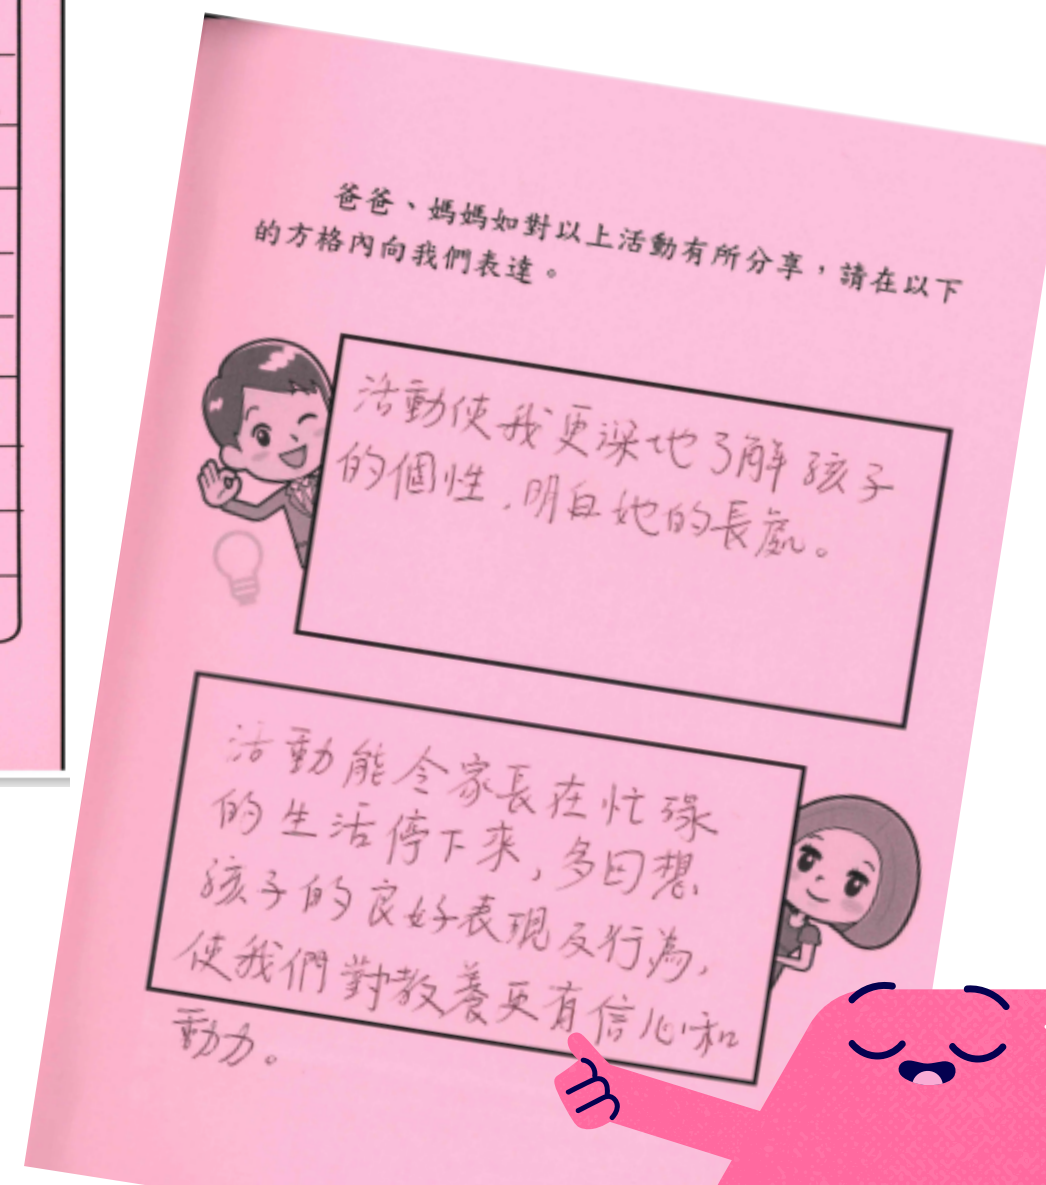 爸爸、媽媽如對以上活動有所分享，請在以下
的方格內向我們表達。
活動使我更深地了解孩子
的個性，明白她的長處。
活動能令家長在忙碌
的生活停下來，多回想
孩子的良好表現及行為，
使我們對教養更有信心和
動力。